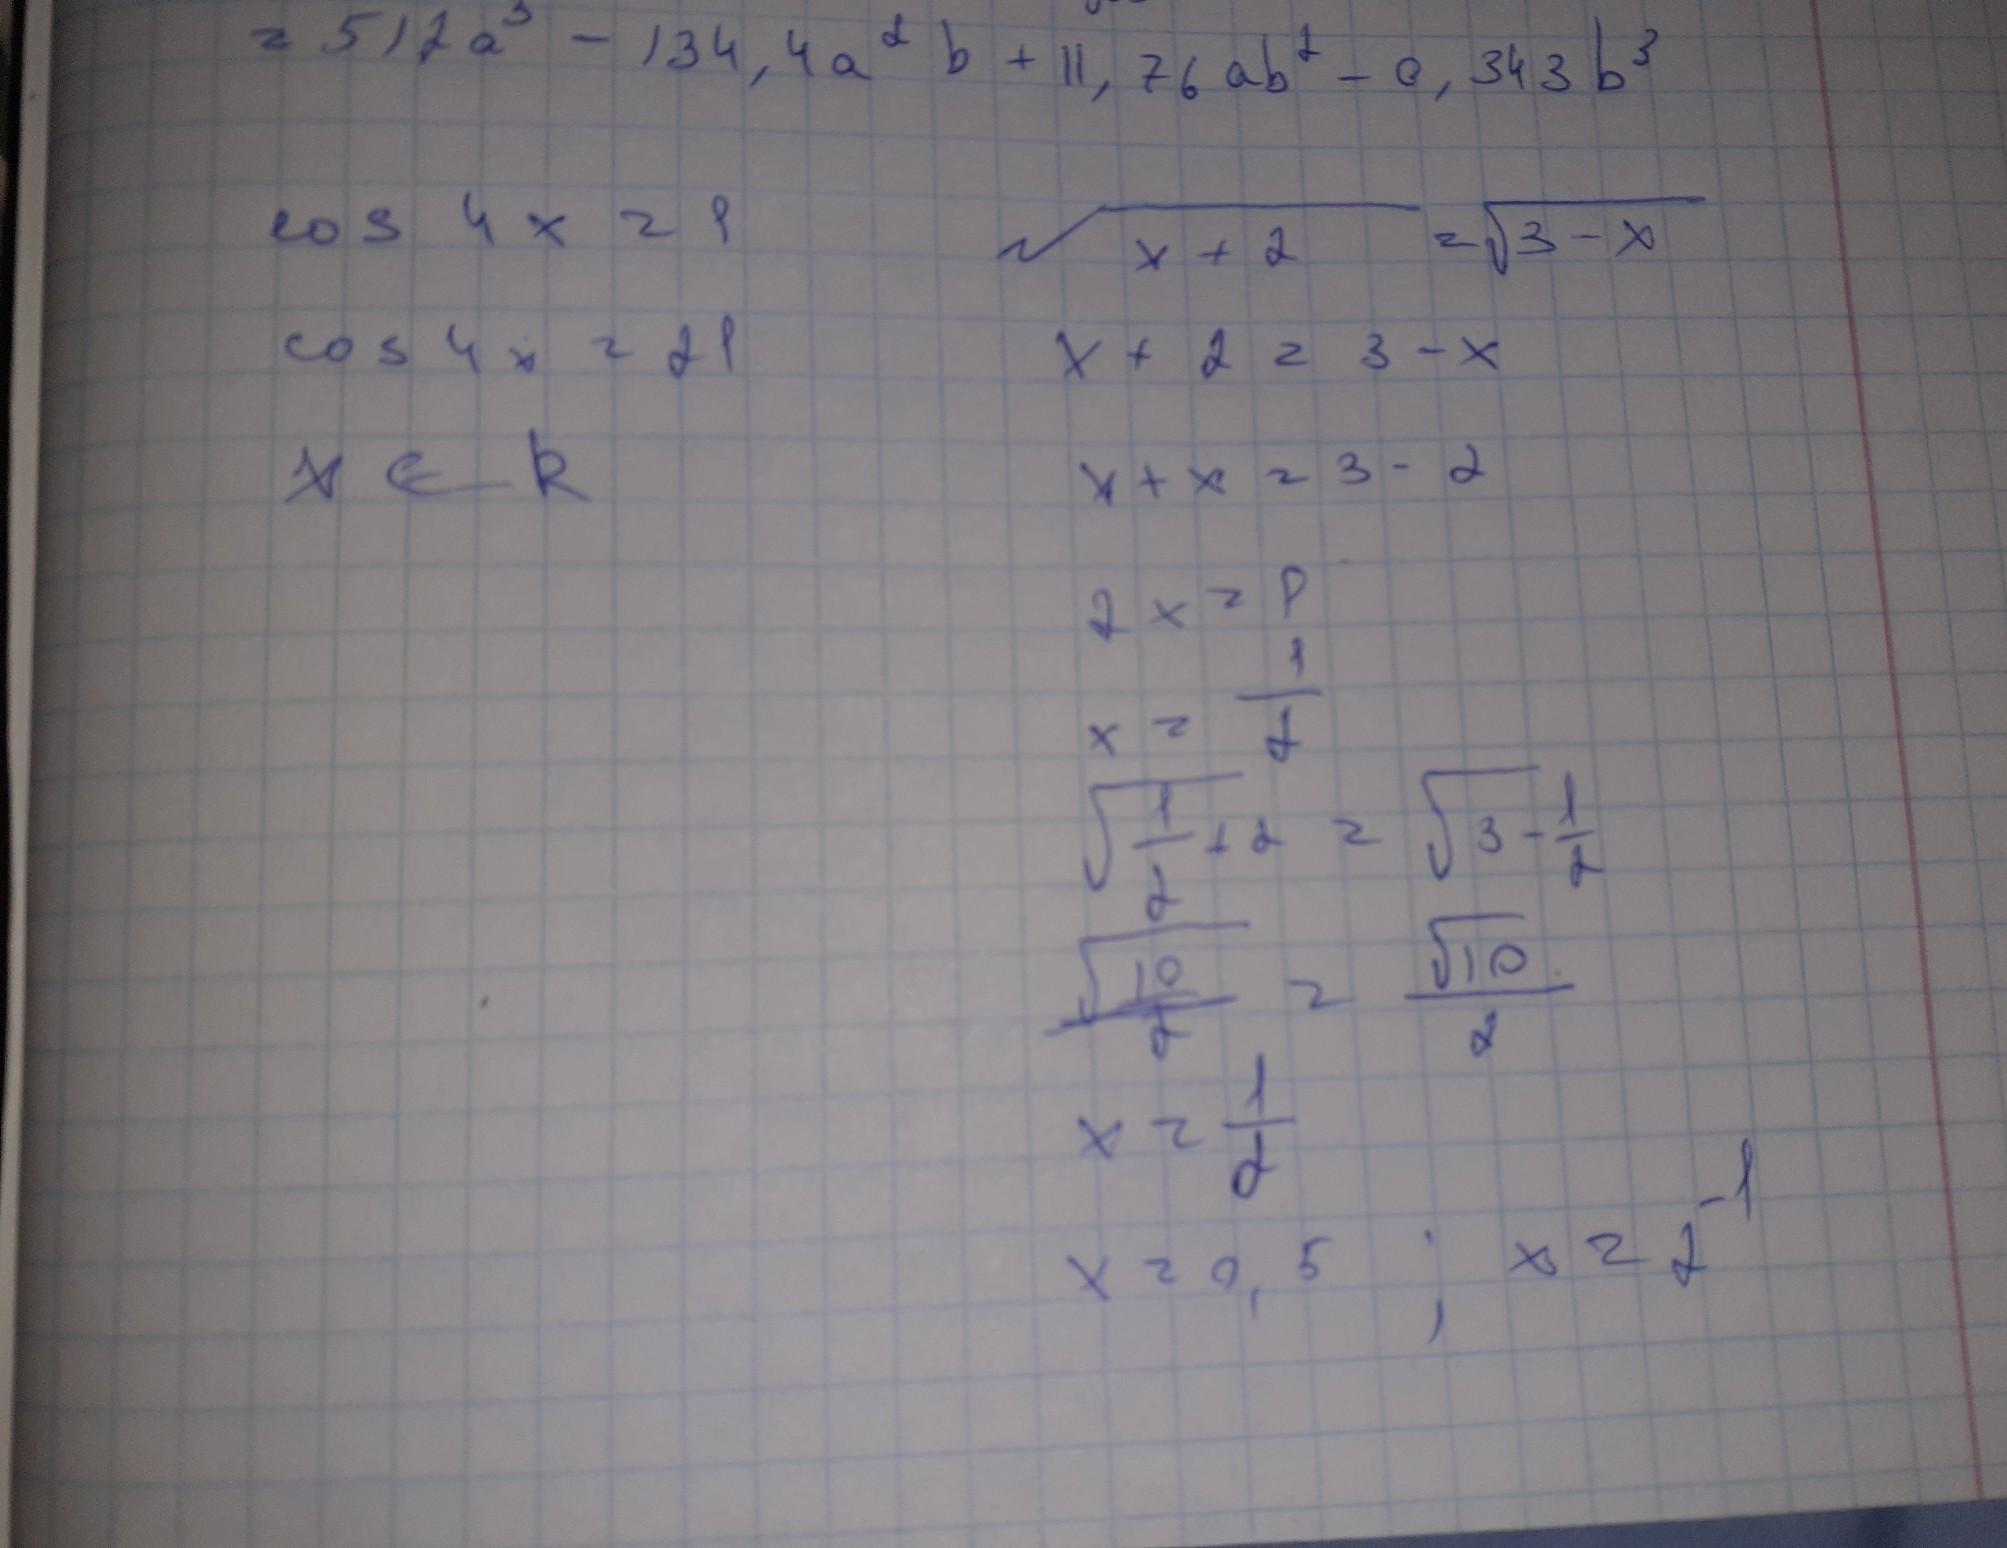 = 512a³ - 134,4a²b + 11,76ab² - 0,343b³
cos 4x = P
cos 4x = 2P
x ∈ R
√(x + 2) = √(3 - x)
x + 2 = 3 - x
x + x = 3 - 2
2x = P
x = 1/2
√(1/2 + 2) = √(3 - 1/2)
√10/2 = √10/2
x = 1/2
x = 0,5 ; x = 2⁻¹